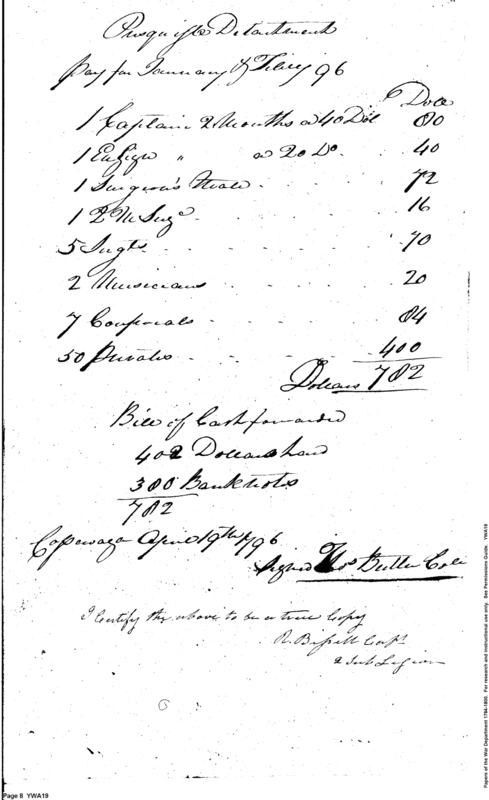 Presqu isle Detachment
Pay for January & Feby 96
Dolls
1 Captain 2 Months @ 40 Dol 80
1 Ensign " @ 20 Do. 40
1 Surgeon's Mate 72
1 2 M Sergt 16
5 Sergts 70
2 Musicians 20
7 Corporals 84
50 Privates 400
Dollars 782
Bill of Cash forwarded
402 Dollars hard
380 Bank notes
782
April 19th 1796
Signed Thos Butler Colo
I Certify the above to be a true Copy
R. Bissell Capt
2 Sub Legion
Page 8 YWA19
Papers of the War Department 1784-1800. For research and instructional use only. See Permissions Guide. YWA19